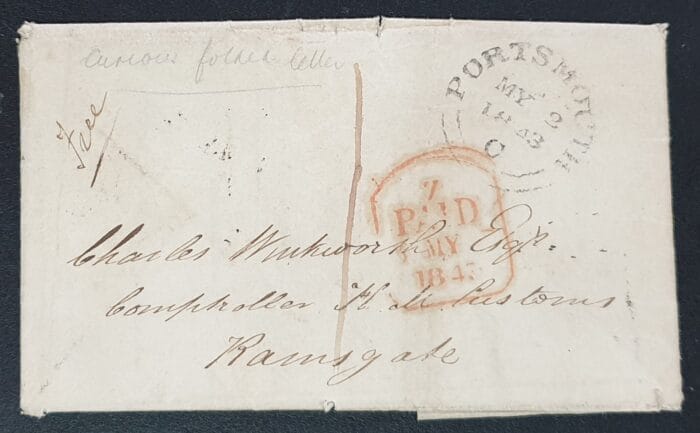 curious folded letter
Free
PORTSMOUTH
MY 2
1843
C
Z
PAID
MY
1843
Charles Winkworth Esqr.
Comptroller H. M. Customs
Ramsgate